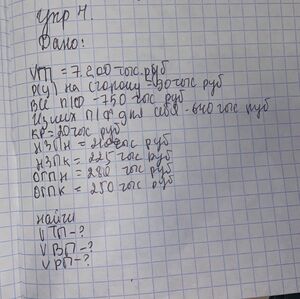 Упр 4.
Дано:
VТП = 7.200 тыс.руб
усл на сторону = 50 тыс руб
Все п/ф - 750 тыс руб
Из них п/ф для себя - 640 тыс руб
КР = 20 тыс руб
НЗПн = тыс руб
НЗПк = 225 тыс руб
ОГПн = 280 тыс руб
ОГПк = 250 тыс руб
найти
VТП - ?
VВП - ?
VРП - ?